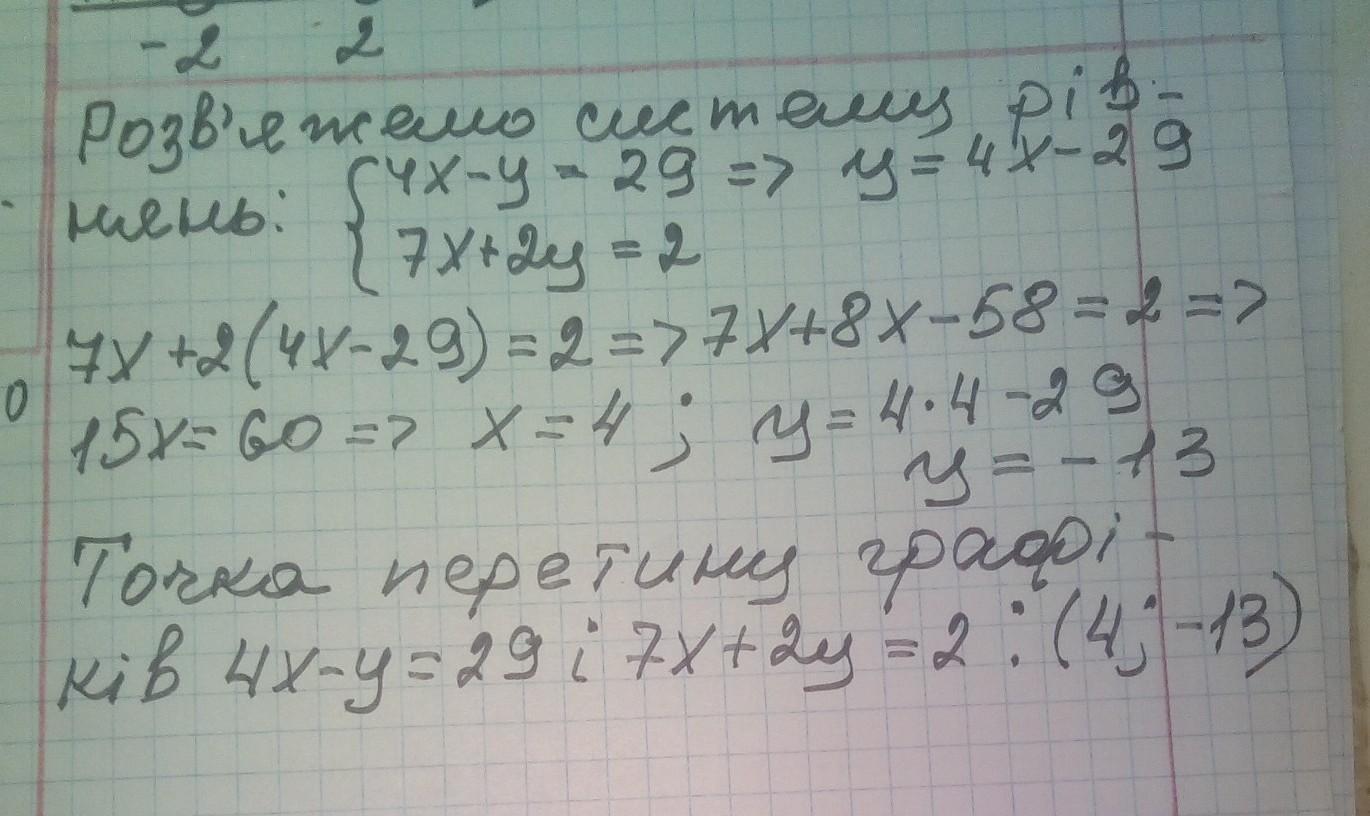 -2 2
Розв'яжемо систему рів-
нянь: {4x-y=29 => y=4x-29
7x+2y=2
7x+2(4x-29)=2=>7x+8x-58=2=>
15x=60=> x=4; y=4·4-29
y=-13
Точка перетину графі-
ків 4x-y=29 і 7x+2y=2: (4;-13)
0